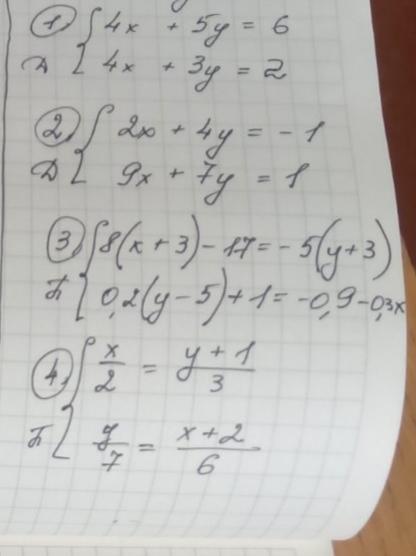 1) { 4x + 5y = 6
Д 4x + 3y = 2
2) { 2x + 4y = -1
Д 9x + 7y = 1
3) { 8(x+3) - 17 = -5(y+3)
П 0,2(y-5) + 1 = -0,9 - 0,3x
4) { x/2 = (y+1)/3
П y/7 = (x+2)/6